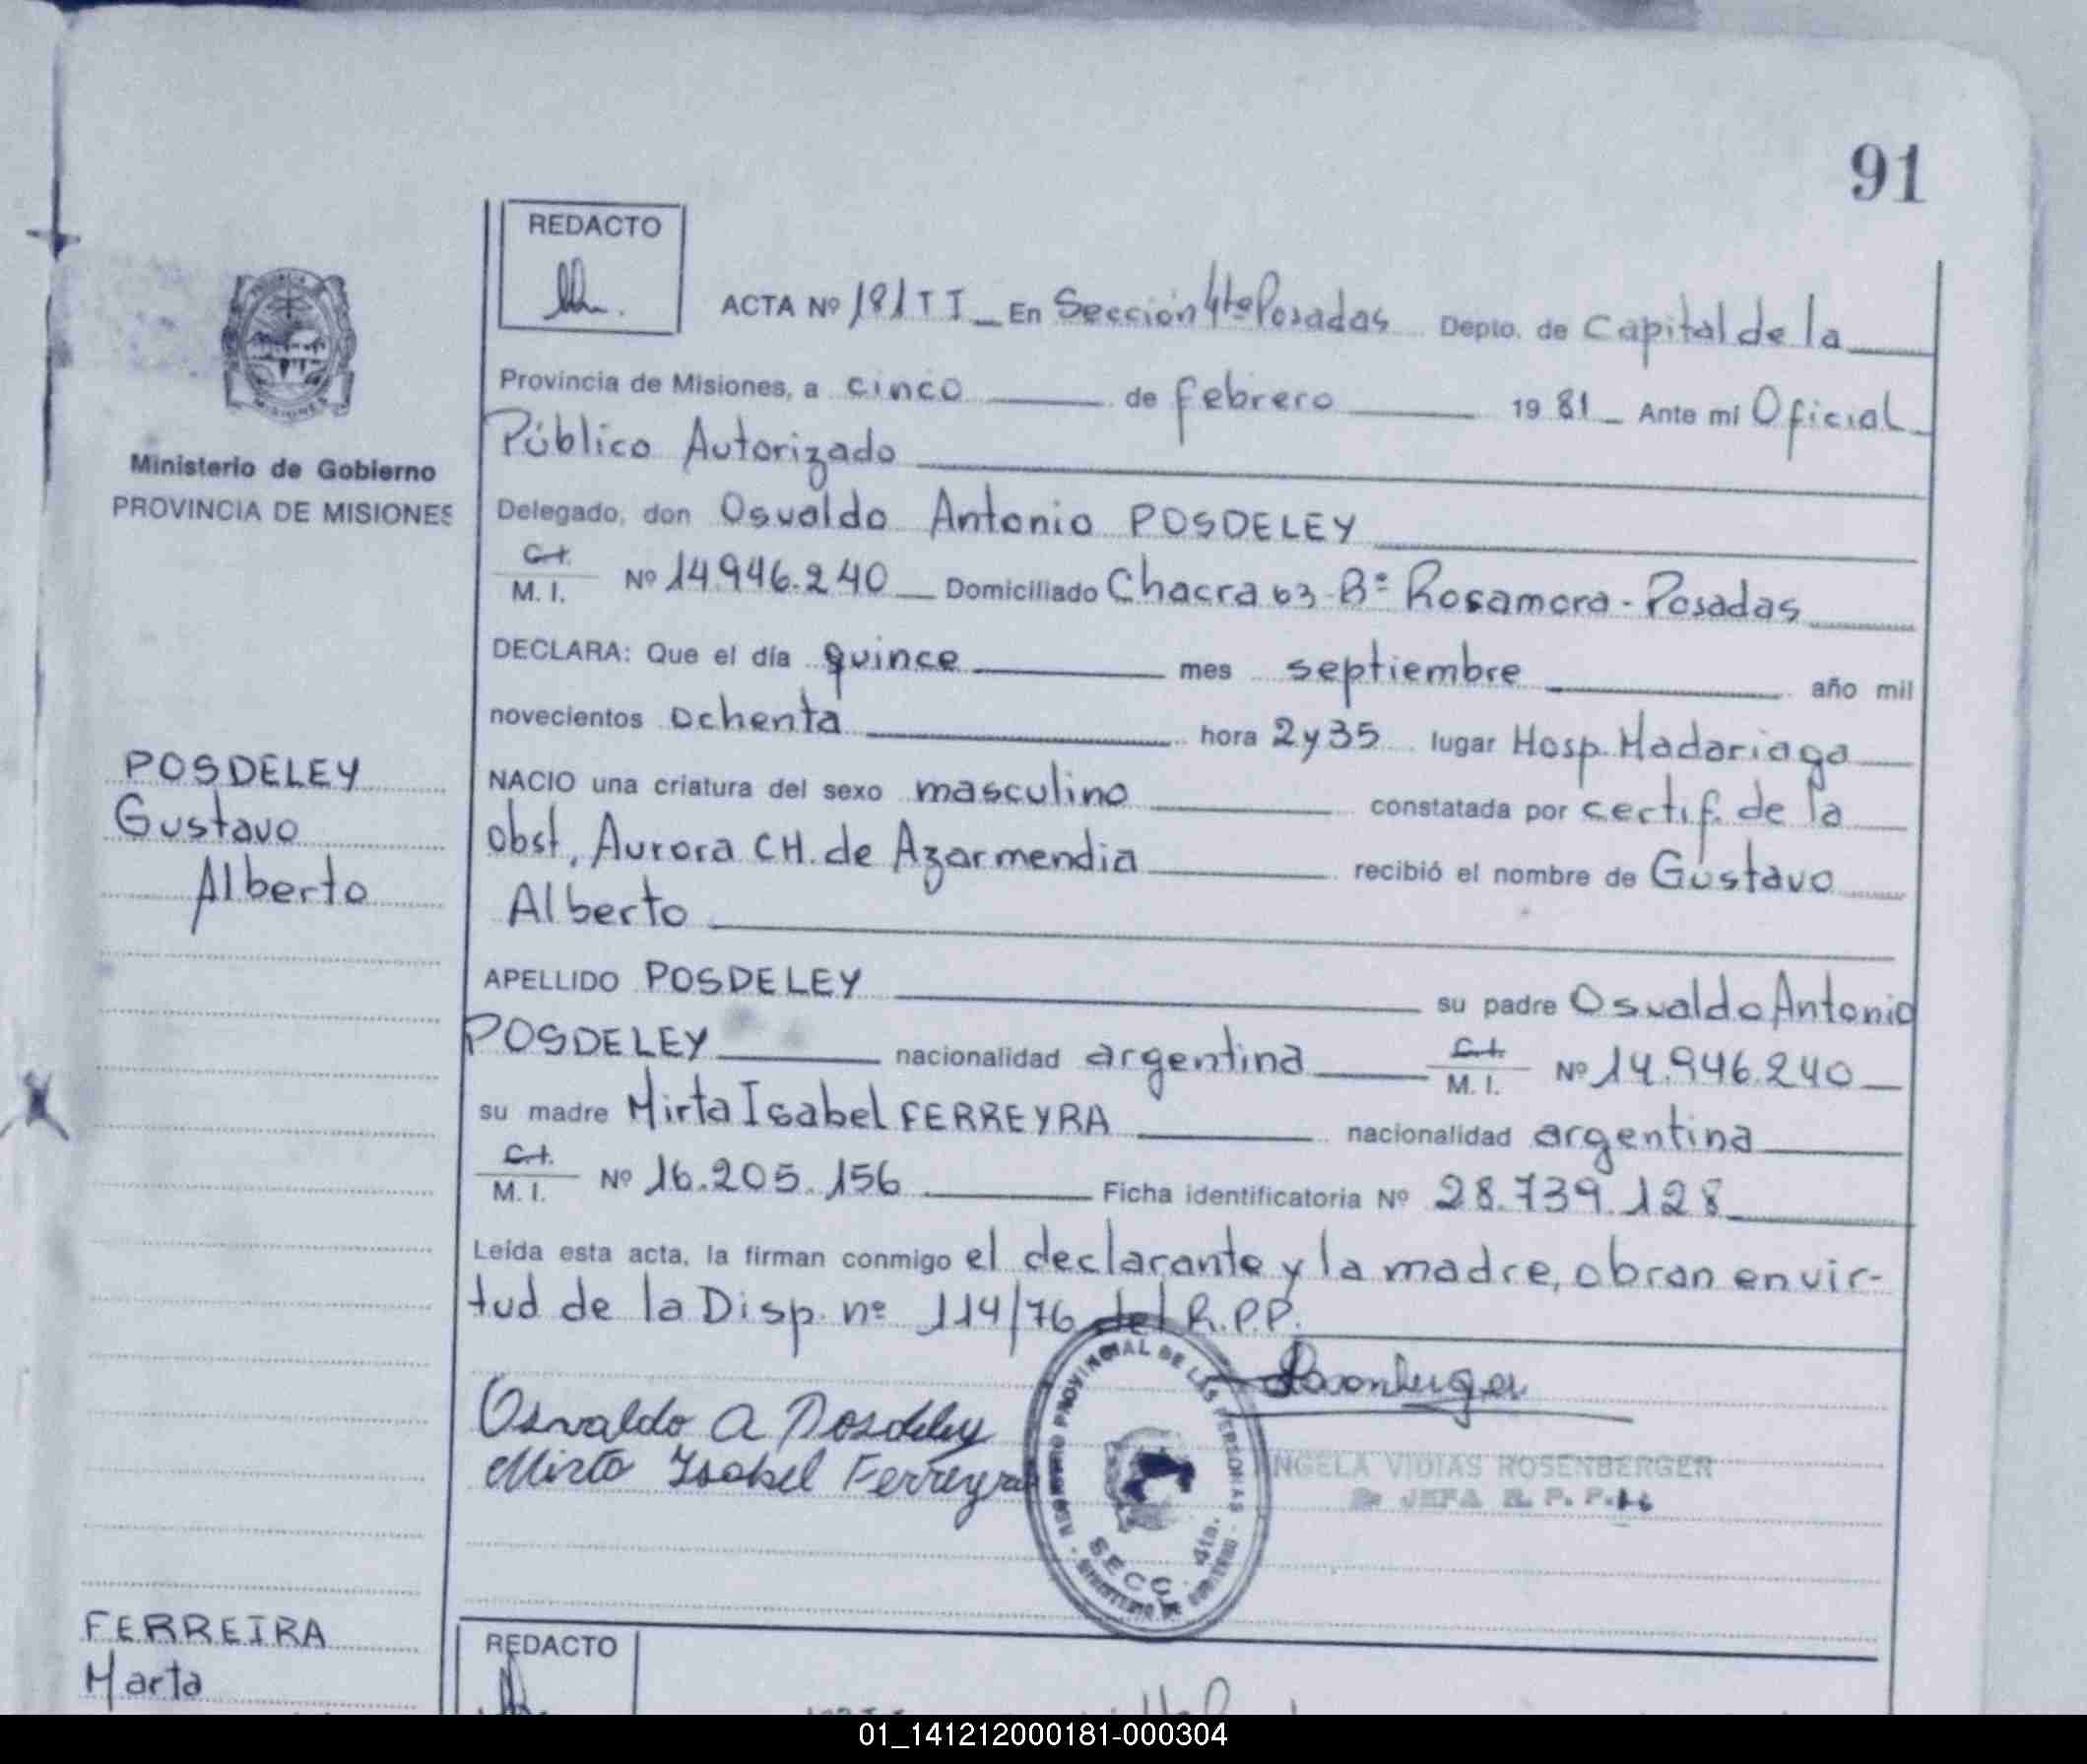 91
REDACTO
ACTA Nº 181 T I _ En Sección 4ta Posadas Depto. de Capital de la
Provincia de Misiones, a cinco de febrero 1981 _ Ante mí Oficial
Público Autorizado
Delegado, don Osvaldo Antonio POSDELEY
C.I.
M. I. Nº 14.946.240 Domiciliado Chacra 63-Bº Rosamora - Posadas
DECLARA: Que el día quince mes septiembre año mil
novecientos ochenta hora 2 y 35 lugar Hosp. Madariaga
NACIO una criatura del sexo masculino constatada por certif. de la
obst, Aurora CH. de Azarmendia recibió el nombre de Gustavo
Alberto
APELLIDO POSDELEY su padre Osvaldo Antonio
POSDELEY nacionalidad argentina C.I. M. I. Nº 14.946.240
su madre Mirta Isabel FERREYRA nacionalidad argentina
C.I.
M. I. Nº 16.205.156 Ficha identificatoria Nº 28.739.128
Leída esta acta, la firman conmigo el declarante y la madre, obran en vir-
tud de la Disp. nº 114/76 del R.P.P.
Osvaldo A Posdeley
Mirta Isabel Ferreyra
Rosenberger
REGISTRO PROVINCIAL DE LAS PERSONAS
SECC. 4ta.
MINISTERIO DE GOBIERNO
NGELA VIDIAS ROSENBERGER
JEFA R. P. P.
Ministerio de Gobierno
PROVINCIA DE MISIONES
POSDELEY
Gustavo
Alberto
FERREIRA
Marta
REDACTO
01_141212000181-000304